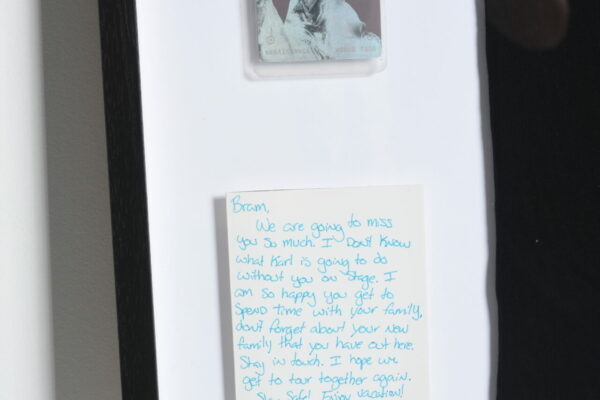 Bram,
We are going to miss
you so much. I Don't Know
what Karl is going to do
without you on stage. I
am so happy you get to
Spend time with your family,
don't forget about your new
family that you have out here.
Stay in touch. I hope we
get to tour together again.
Stay Safe! Enjoy vacation!